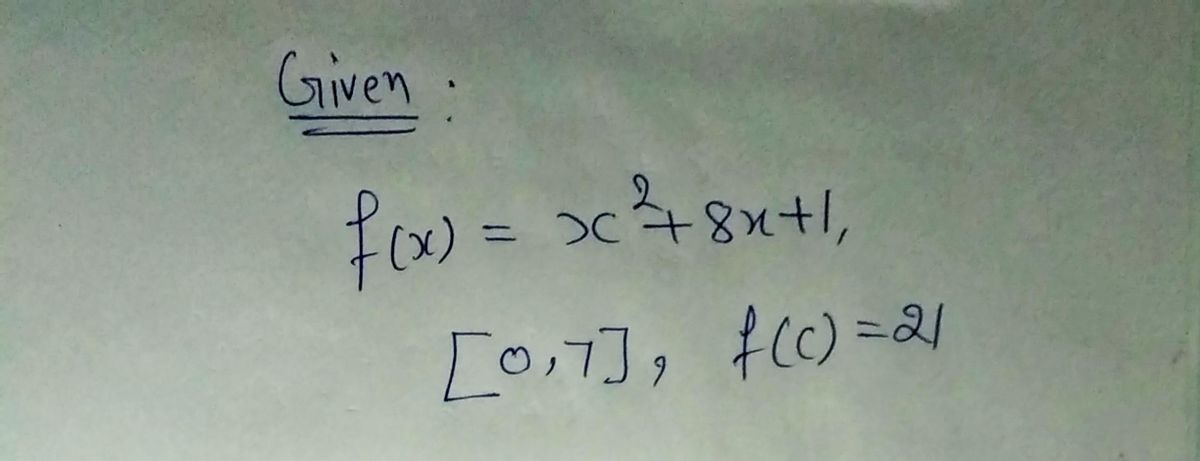 Given :
f(x) = x²+8x+1,
[0,7], f(c)=21